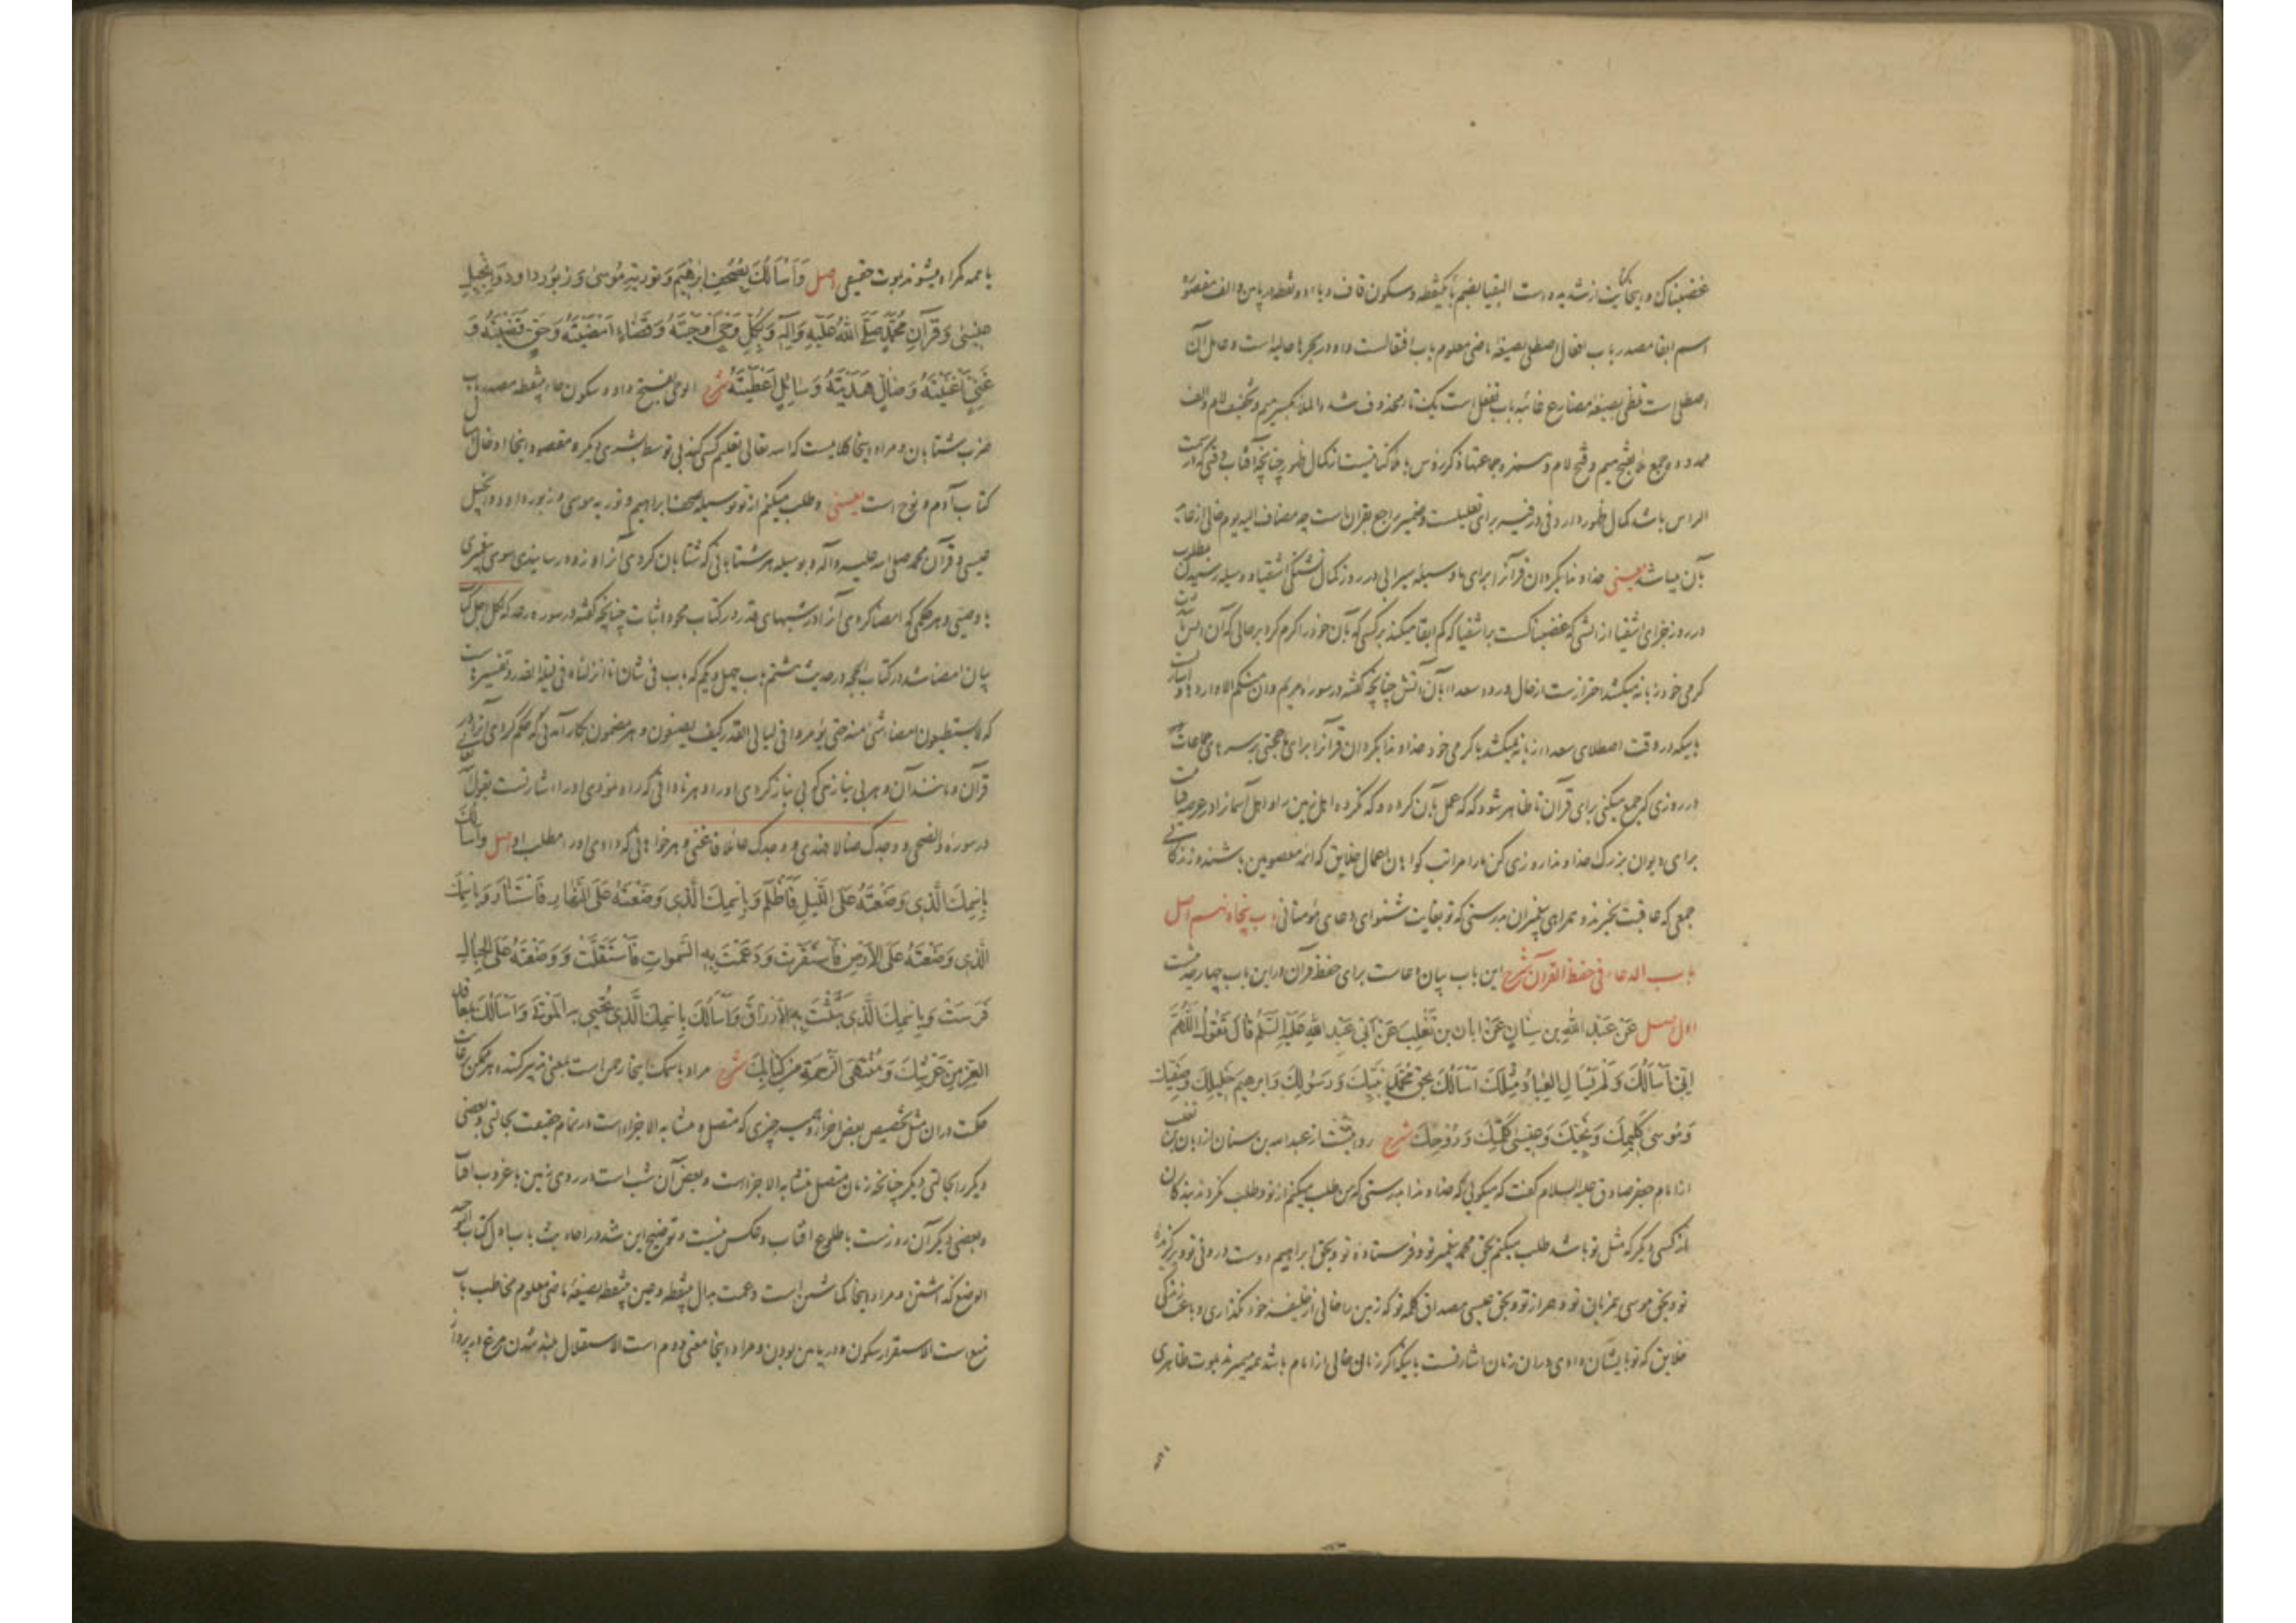 غضبناک و اینجا کنایت از شدید است البقیا بضم با یکنقطه و سکون قاف و یاء دو نقطه در پایین و الف مقصوره
اسم ابقا مصدر باب افعال اصطلی بصیغه ماضی معلوم باب افتعالست و او در بحرها حالیه است و صل آن
اصطلی است تلظی بصیغه مضارع غائبه باب تفعل است یک تا محذوف شده الملا بکسر میم و تخفیف لام و الف
ممدوده جمع ملأ بفتح میم و فتح لام و همزه جماعتها ذکر رؤس با ملأ کنایتست از کمال ظهور چنانچه آفتاب وقتی که در سمت
الراس باشد کمال ظهور دارد و فی در فیه برای تعلیلست و ضمیر راجع بقران است چه مضاف الیه یوم خالی از عاید
بآن میباشد یعنی خداوندا بگردان قرآنرا برای ما وسیله سیرابی در روز کمال تشنگی اشقیا و وسیله رسیدن بمطلوب
در روز جزای اشقیا از آتشی که غضبناکست بر اشقیا که کم ابقا میکند بر کسی که بآن خود را گرم کرد بر حالی که آن آتش
گرمی خود زبانه میکشد احتراز است از حال ورود سعدا بآن آتش چنانچه گفته در سوره مریم و ان منکم الا واردها و
باینکه در وقت اصطلای سعدا زبانه نمیکشد با گرمی خود خداوندا بگردان قرآنرا برای ما حجتی بر سرهای جماعات
در روزی که جمع میکنی برای قرآن تا ظاهر شود که که عمل بآن کرده و که نکرده اهل زمین را و اهل آسمانرا در عرصه قیامت
برای دیوان بزرگ خداوندا روزی کن ما را مراتب گواهان اعمال خلایق که ائمه معصومین باشند و زندگانی
جمعی که عاقبت بخیرند و همراهی پیغمبران بدرستی که تو بغایت شنوای دعای مؤمنانی باب پنجاه و نهم اصل
باب الدعاء فی حفظ القرآن شرح این باب بیان دعاست برای حفظ قرآن در این باب چهار حدیثست
اول اصل عَنْ عَبْدِ اللهِ بن سِنَانٍ عَنْ اَبَان بن تَغْلِبَ عَنْ اَبی عَبْدِ اللهِ عَلَیْهِ السَّلَمُ قَالَ تَقُولُ اَللّٰهُمَّ
اِنّی اَسْأَلُكَ وَلَمْ یَسْأَلِ العِبَادُ مِثْلَكَ اَسْأَلُكَ بِحَقِّ مُحَمَّدٍ نَبِیِّكَ وَرَسُولِكَ وَاِبْرهیم خَلِیلِكَ وَصَفِیِّكَ
وَمُوسیٰ كَلِیمِكَ وَنَجِیِّكَ وَعِیسیٰ كَلِمَتِكَ وَرُوحِكَ شرح روایتست از عبدالله بن سنان از ابان بن تغلب
از امام جعفر صادق علیه السلام گفت که میگویی که خداوندا بدرستی که من طلب میکنم از تو و طلب نکردند بندگان
از کسی دیگر که مثل تو باشد طلب میکنم بحق محمد پیغمبر تو و فرستاده تو و بحق ابراهیم دوست درونی تو و برگزیده
تو و بحق موسی همزبان تو و همراز تو و بحق عیسی مصداق کلمه تو که زمین را خالی از خلیفه خود نگذاری و باعث زندگی
خلایق که تو بایشان دادی در آن زمان اشارتست باینکه اگر زمان خالی از امام باشد همه میمیرند بموت ظاهری
یا همه گمراه میشوند بموت حقیقی اصل وَاَسْأَلُكَ بِصُحُفِ اِبْرٰهیمَ وَتَوْرٰیةِ مُوسیٰ وَزَبُورِ دَاوُدَ وَاِنْجِیلِ
عِیسیٰ وَقُرْآنِ مُحَمَّدٍ صَلَّی اللهُ عَلَیْهِ وَآلِهِ وَبِكُلِّ وَحْیٍ اَوْحَیْتَهُ وَقَضَاءٍ اَمْضَیْتَهُ وَحَقٍّ قَضَیْتَهُ وَ
غَنِیٍّ اَغْنَیْتَهُ وَضَالٍّ هَدَیْتَهُ وَسَائِلٍ اَعْطَیْتَهُ شرح الوحی بفتح واو و سکون حاء بینقطه مصدر باب
ضرب شتابان و مراد اینجا کلامیست که الله تعالی تعلیم کسی کند بی توسط بشری دیگر و مقصود اینجا ادخال
کتاب آدم و نوح است یعنی و طلب میکنم از تو بوسیله صحف ابراهیم و توریه موسی و زبور داود و انجیل
عیسی و قرآن محمد صلی الله علیه و آله و بوسیله هر شتابانی که شتابان کردی آنرا و زود رسانیدی سوی پیغمبری
یا وصیی و هر حکمی که امضا کردی آنرا در شبهای قدر در کتاب محو و اثبات چنانچه گفته در سوره رعد که لکل اجل کتاب
بیان امضا شد در کتاب الحجه در حدیث هشتم باب چهل و یکم که باب فی شان انا انزلناه فی لیلة القدر و تفسیرهاست
که لا یستطیعون امضا شئ منه حتی یؤمروا فی لیالی القدر کیف یصنعون و هر مضمون بکار آمدنی که حکم کردی آنرا در
قرآن و مانند آن و هر بی نیازی که بی نیاز کردی او را و هر نادانی که راه نمودی او را اشارتست بقول
در سوره والضحی و وجدک ضالا فهدی و وجدک عائلا فاغنی و هر خواهانی که دادی او را مطلب او اصل وَاَسْأَلُكَ
بِاِسْمِكَ الَّذی وَضَعْتَهُ عَلَی اللَّیْلِ فَاَظْلَمَ وَبِاِسْمِكَ الَّذی وَضَعْتَهُ عَلَی النَّهَارِ فَاسْتَنَارَ وَبِاِسْمِكَ
الَّذی وَضَعْتَهُ عَلَی الاَرْضِ فَاسْتَقَرَّتْ وَدَعَمْتَ بِهِ السَّمٰوَاتِ فَاسْتَقَلَّتْ وَوَضَعْتَهُ عَلَی الجِبَالِ
فَرَسَتْ وَبِاِسْمِكَ الَّذی بَثَثْتَ بِهِ الاَرْزَاقَ وَاَسْأَلُكَ بِاِسْمِكَ الَّذی تُحْیی بِهِ الْمَوْتیٰ وَاَسْأَلُكَ بِمَعَاقِدِ
العِزِّ مِنْ عَرْشِكَ وَمُنْتَهَی الرَّحْمَةِ مِنْ كِتَابِكَ شرح مراد باسمک اینجا رحمن است بمعنی تدبیر کننده هر ممکن
حکمت در آن مثل تخصیص بعض اجزاء هر چیزی که متصل و متشابه الاجزاء است در تمام حقیقت بحالتی و بعضی
دیگر را بحالتی دیگر چنانچه زمان متصل متشابه الاجزاء است و بعض آن شب است در روی زمین با غروب آفتاب
و بعضی دیگر آن روز است با طلوع افتاب و عکس نیست و توضیح این شد در احادیث باب اول کتاب التوحید
الوضع گذاشتن و مراد اینجا گماشتن است دعمت بدال بینقطه و عین بینقطه بصیغه ماضی معلوم مخاطب باب
منع است الاستقرار سکون و در پایین بودن و مراد اینجا معنی دوم است الاستقلال بلند شدن مرغ در پرواز